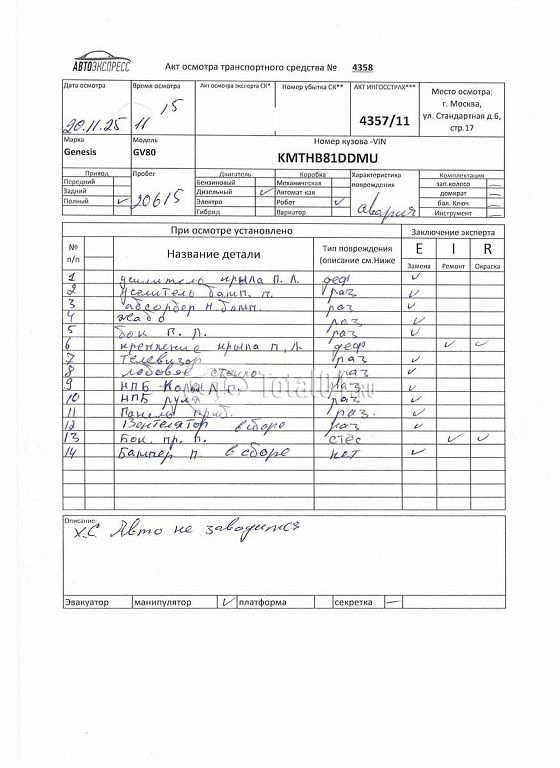 АВТОЭКСПРЕСС
Акт осмотра транспортного средства № 4358
Дата осмотра Время осмотра Акт осмотра эксперта СК* Номер убытка СК** АКТ ИНГОССТРАХ*** Место осмотра:
г. Москва,
ул. Стандартная д.6,
стр.17
20.11.25 11 15 4357/11
Марка Модель Номер кузова -VIN
Genesis GV80 KMTHB81DDMU
Привод Пробег Двигатель Коробка Характеристика повреждения Комплектация
Передний Бензиновый Механическая зап.колесо —
Задний Дизельный ✓ Автомат-кая домкрат —
Полный ✓ 20615 Электро Робот ✓ авария бал. Ключ —
Гибрид Вариатор Инструмент —
При осмотре установлено Заключение эксперта
№ п/п Название детали Тип повреждения (описание см.Ниже E I R
Замена Ремонт Окраска
1 усилитель крыла П. Л. деф ✓
2 Уселитель бамп. п. раз ✓
3 абсорбер н. бамп. раз ✓
4 Жабо раз ✓
5 бок П. Л. раз ✓
6 крепление крыла П. Л. деф ✓ ✓
7 Телевизор раз ✓
8 лобовое стекло раз ✓
9 НПБ Колен Л раз ✓
10 НПБ руля раз ✓
11 Панель приб. раз. ✓
12 Вентелятор в сборе раз ✓
13 Бок. пр. п. стёс ✓ ✓
14 Бампер п. в сборе нет ✓
Описание:
Х.С. Авто не заводится
Эвакуатор манипулятор ✓ платформа секретка —